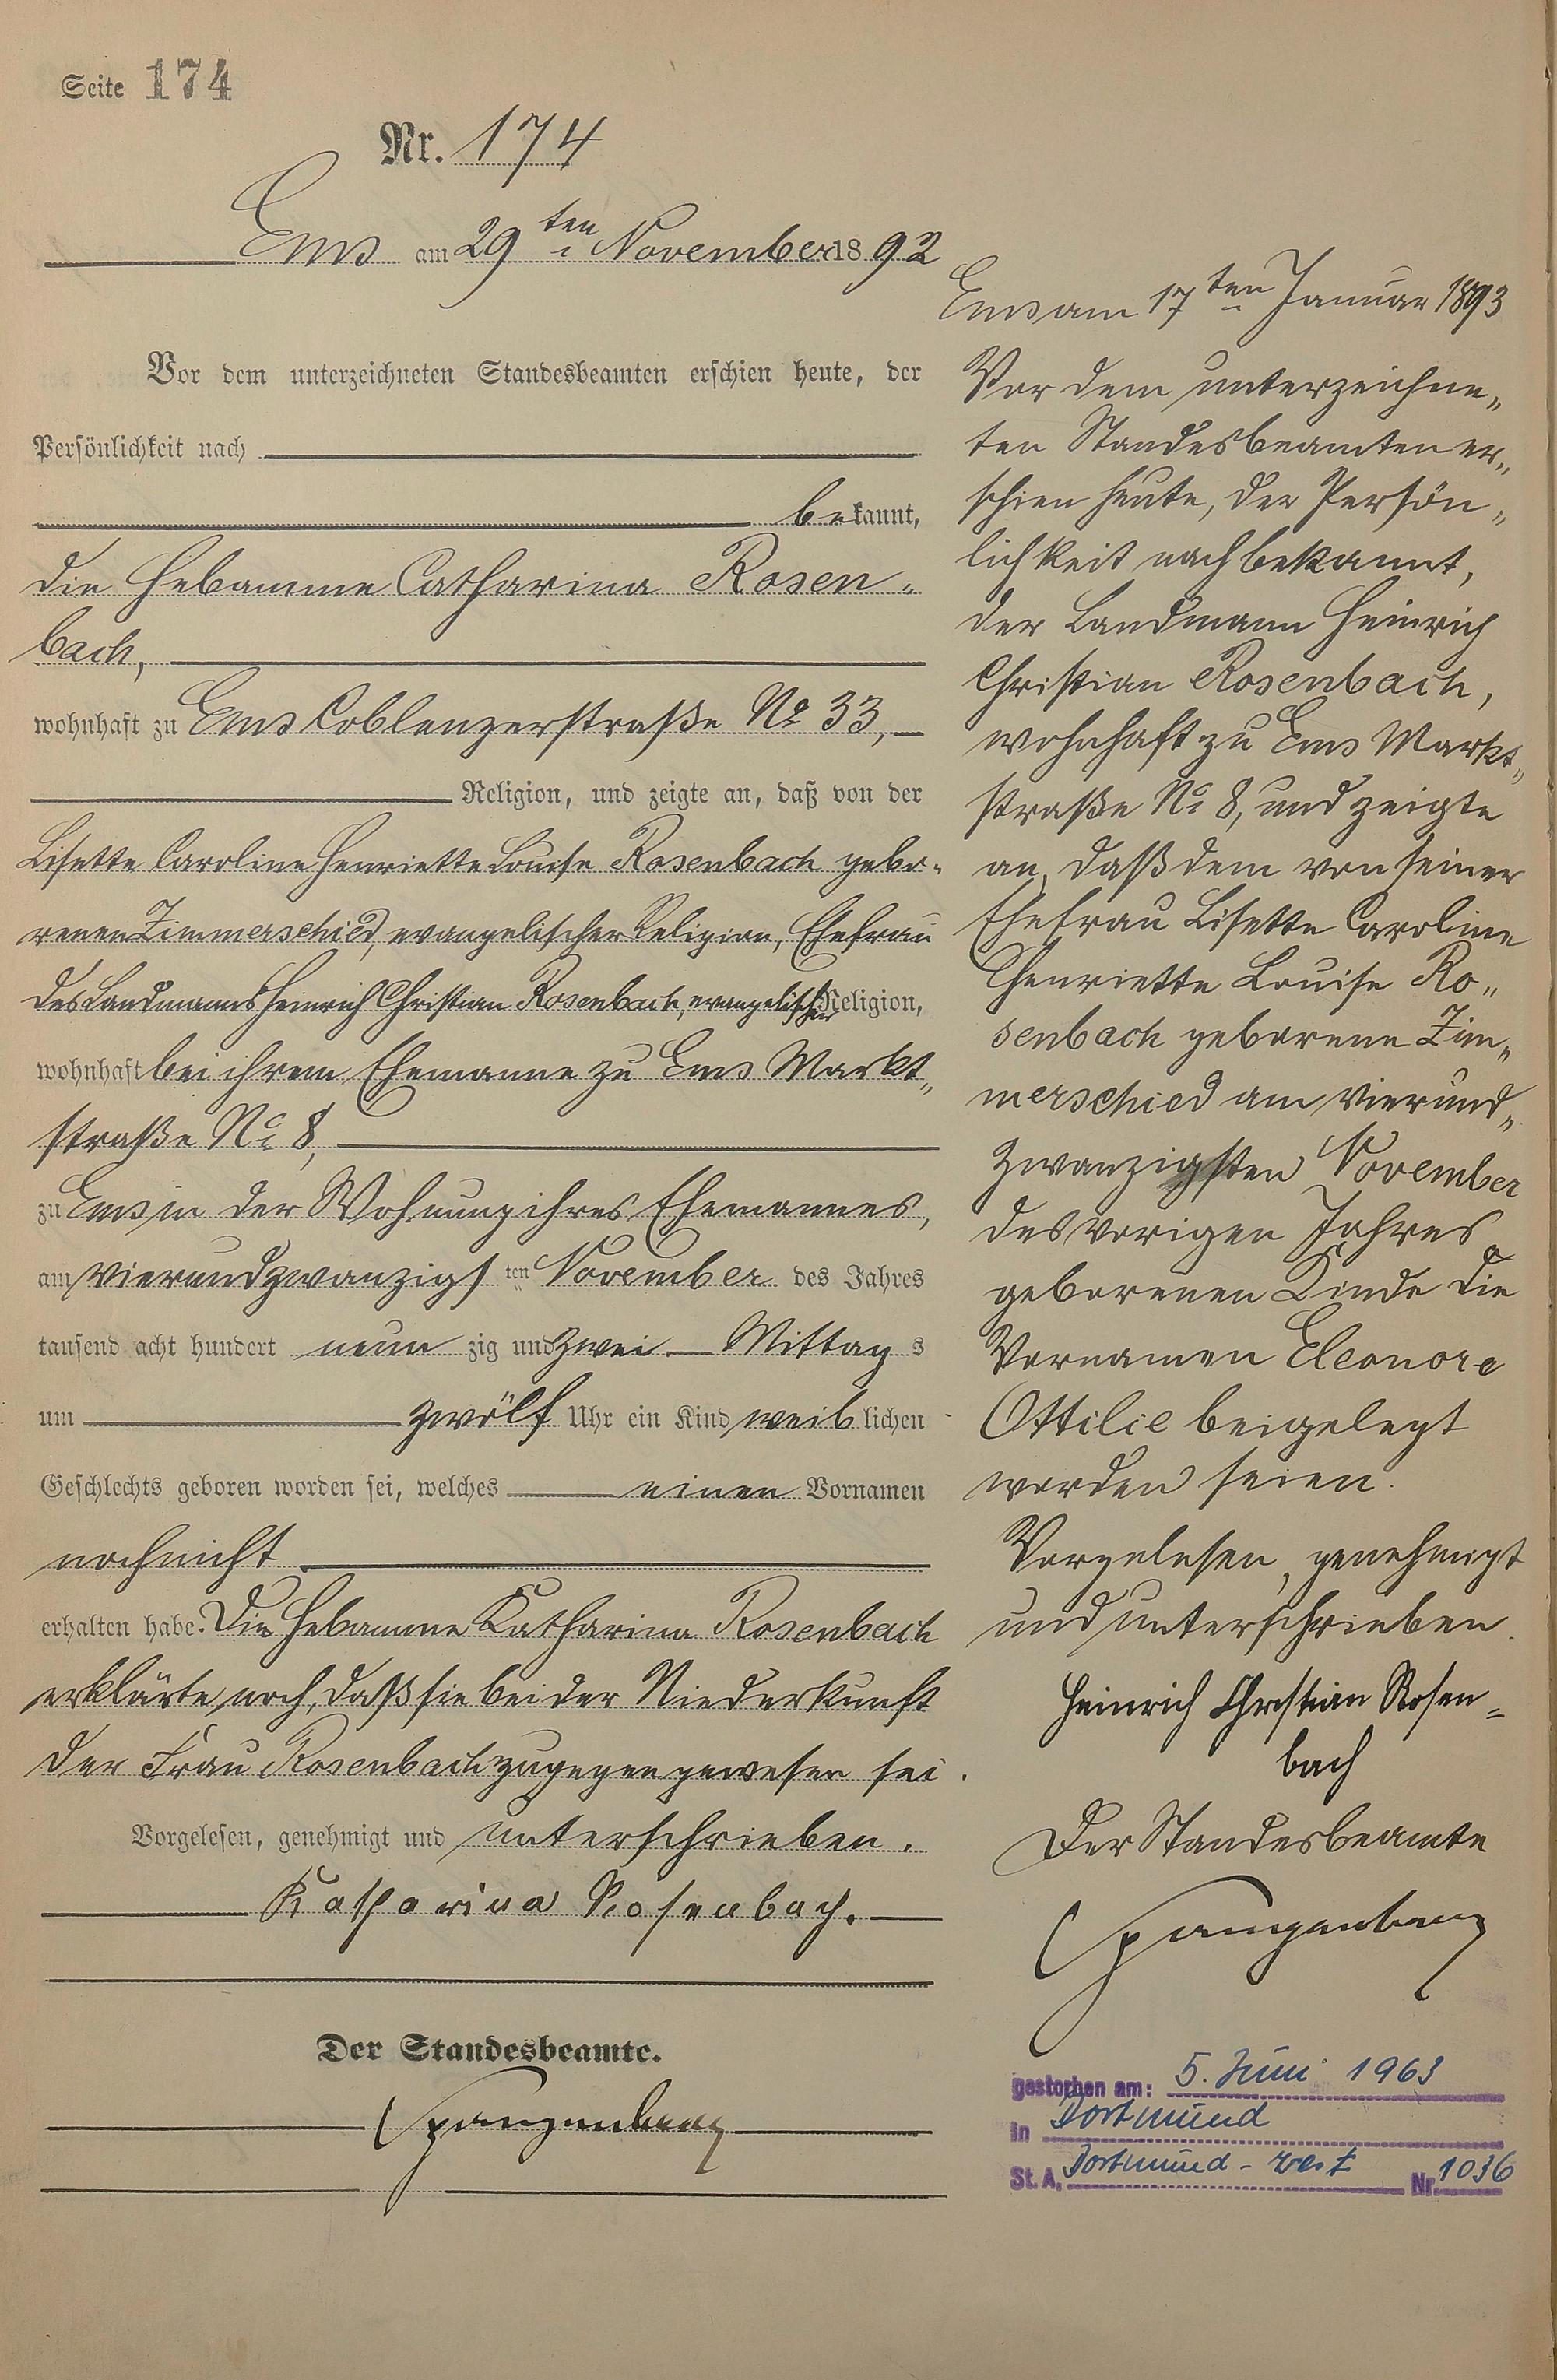 Seite 174
Nr. 174
Ems am 29ten November 1892
Vor dem unterzeichneten Standesbeamten erschien heute, der
Persönlichkeit nach
bekannt,
die Hebamme Catharina Rosen-
bach,
wohnhaft zu Ems Coblenzerstraße No 33,
Religion, und zeigte an, daß von der
Lisette Caroline Henriette Louise Rosenbach gebo-
renen Zimmerschied, evangelischer Religion, Ehefrau
des Landmanns Heinrich Christian Rosenbach, evangelischer Religion,
wohnhaft bei ihrem Ehemanne zu Ems Markt„
straße No 8,
zu Ems in der Wohnung ihres Ehemannes,
am vierundzwanzigsten November des Jahres
tausend acht hundert neunzig und zwei Mittags
um zwölf Uhr ein Kind weiblichen
Geschlechts geboren worden sei, welches einen Vornamen
noch nicht
erhalten habe. Die Hebamme Katharina Rosenbach
erklärte noch, daß sie bei der Niederkunft
der Frau Rosenbach zugegen gewesen sei.
Vorgelesen, genehmigt und unterschrieben.
Katharina Rosenbach.
Der Standesbeamte.
Spangenberg
Ems am 17ten Januar 1893
Vor dem unterzeichne„
ten Standesbeamten er„
schien heute, der Persön„
lichkeit nach bekannt,
der Landmann Heinrich
Christian Rosenbach,
wohnhaft zu Ems Markt„
straße No 8, und zeigte
an, daß dem von seiner
Ehefrau Lisette Caroline
Henriette Louise Ro„
senbach geborene Zim„
merschied am vierund„
zwanzigsten November
des vorigen Jahres
geborenen Kinde die
Vornamen Eleonore
Ottilie beigelegt
worden seien.
Vorgelesen, genehmigt
und unterschrieben.
Heinrich Christian Rosen=
bach
Der Standesbeamte
Spangenberg
gestorben am: 5. Juni 1963
in Dortmund
St. A. Dortmund-West Nr. 1036